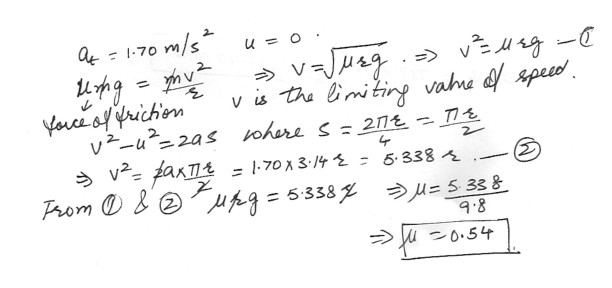 a_t = 1.70 m/s² u = 0.
μmg = mv²/r ⇒ v = √μrg. ⇒ v² = μrg — ①
force of friction v is the limiting value of speed.
v² - u² = 2as where s = 2πr/4 = πr/2
⇒ v² = 2a×πr/2 = 1.70×3.14 r = 5.338 r. — ②
From ① & ② μrg = 5.338 r ⇒ μ = 5.338/9.8
⇒ μ = 0.54